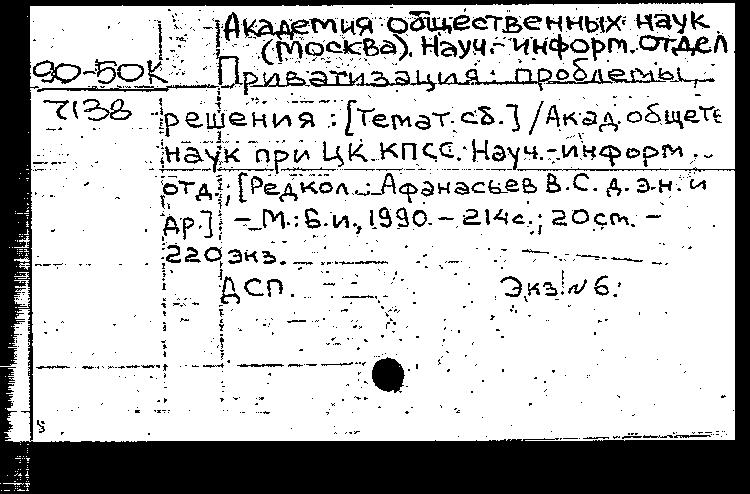 Академия общественных наук
(Москва). Науч.-информ. отдел
90-50К Приватизация: проблемы,
7138 решения : [Темат. сб.] / Акад. общест
наук при ЦК КПСС. Науч.-информ.
отд.; [Редкол.: Афанасьев В.С. д.э.н. и
др.] - М.: Б.и., 1990. - 214с.; 20ст. -
220 экз.
ДСП. Экз N 6.